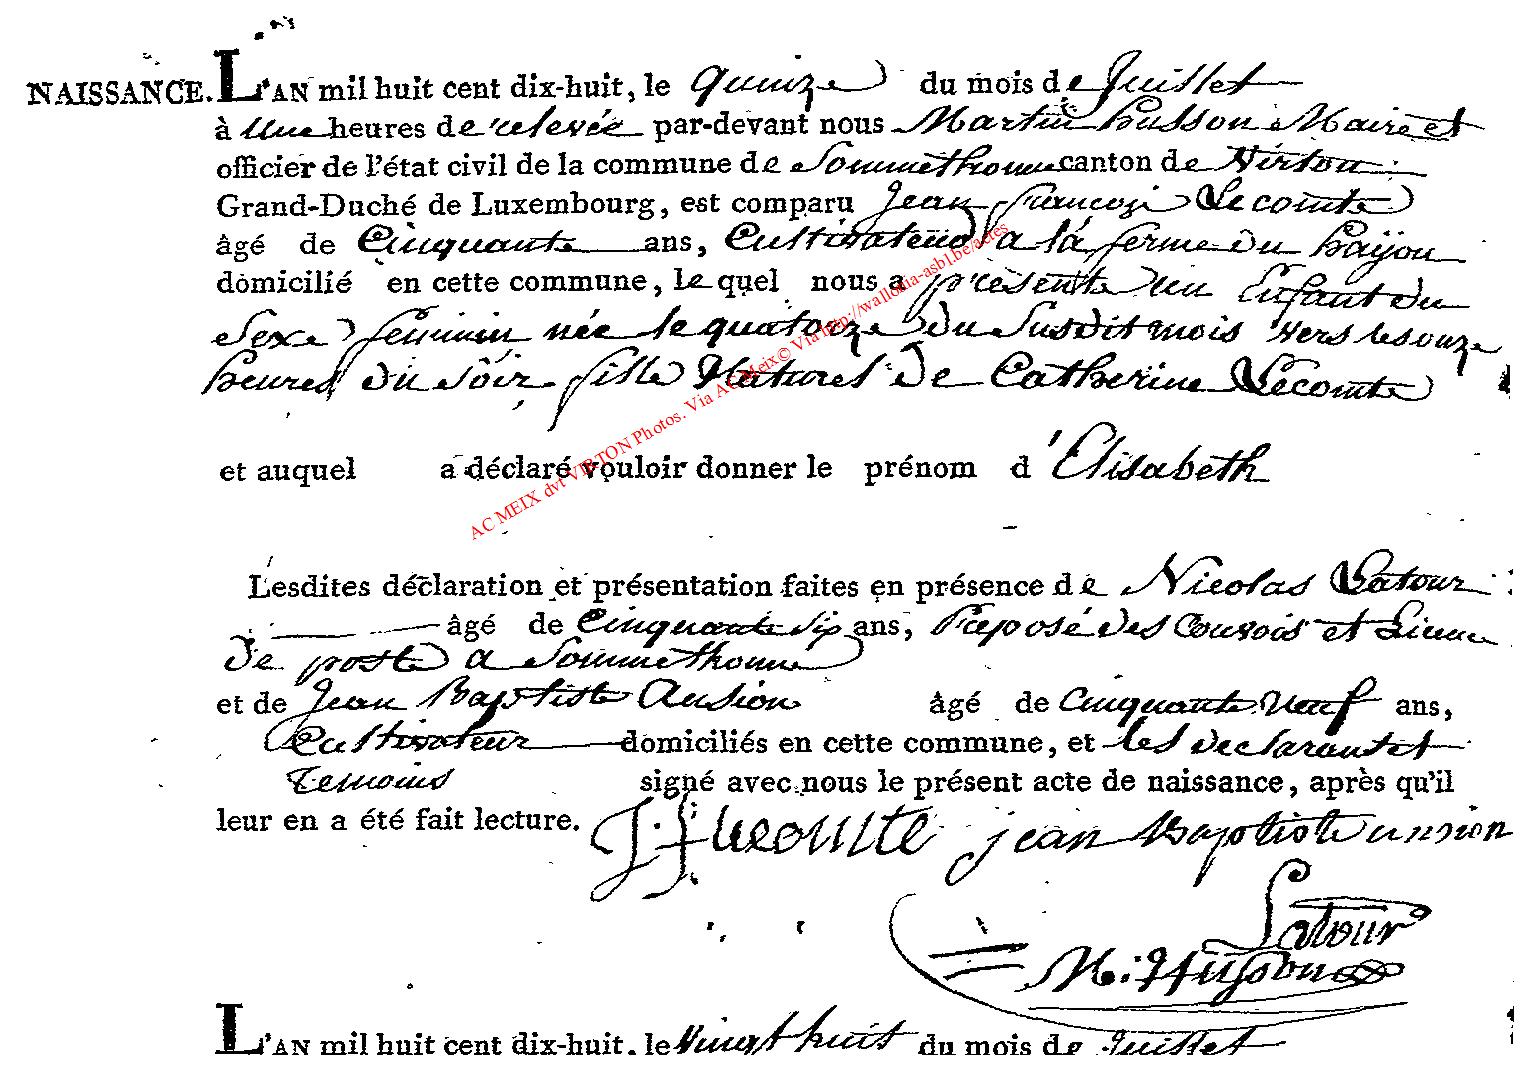 NAISSANCE. L'AN mil huit cent dix-huit, le quinze du mois de Juillet
à une heures de relevée par-devant nous Martin husson Maire et
officier de l'état civil de la commune de Sommethonne canton de Virton
Grand-Duché de Luxembourg, est comparu Jean françois Lecomte
âgé de Cinquante ans, Cultivateur a la ferme du hayon
domicilié en cette commune, le quel nous a présenté un Enfant du
Sexe féminin née le quatorze du Susdit mois vers les onze
heures du soir fille Naturel de Catherine Lecomte
et auquel a déclaré vouloir donner le prénom d'Elisabeth
Lesdites déclaration et présentation faites en présence de Nicolas Latour
âgé de Cinquante six ans, Préposé des Convois et
de poste a Sommethonne
et de Jean Baptiste Ansion âgé de Cinquante Neuf ans,
Cultivateur domiciliés en cette commune, et les declarant et
Temoins signé avec nous le présent acte de naissance, après qu'il
leur en a été fait lecture. J. f lecomte jean Baptiste ansion
Latour
M. Husson
L'AN mil huit cent dix-huit, le Vingt huit du mois de Juillet
AC MEIX dvt VIRTON Photos. Via AC Meix© Via http://wallonia-asbl.be/actes